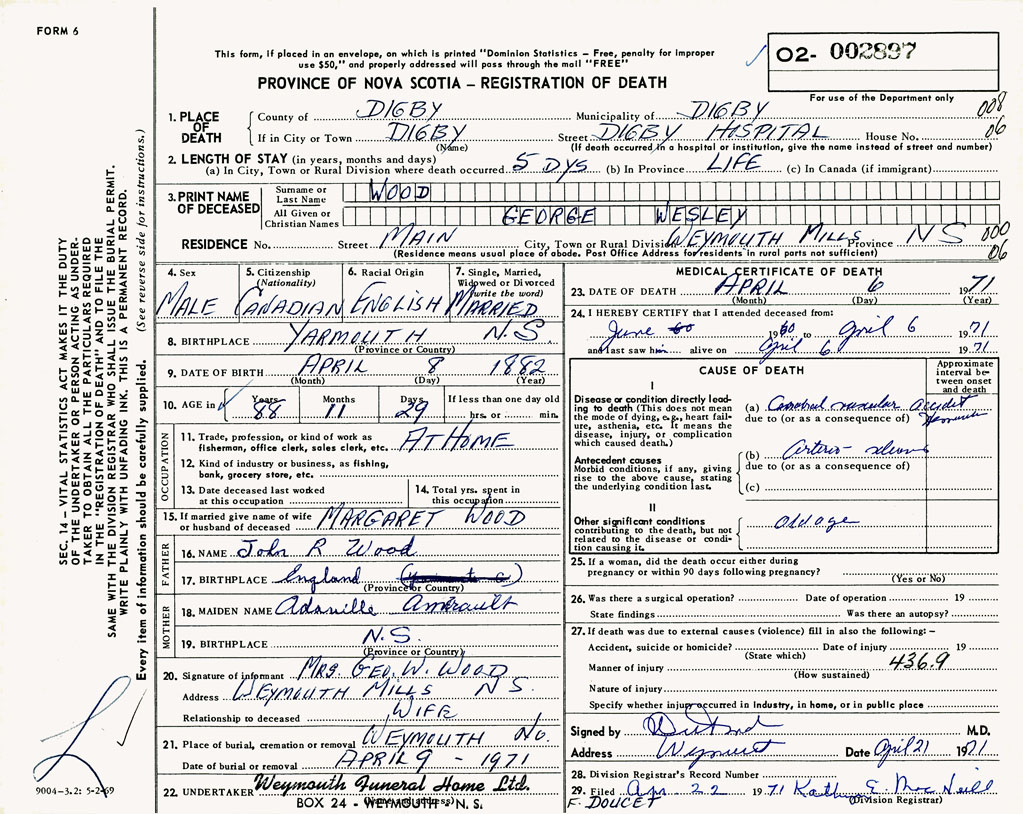 FORM 6
This form, if placed in an envelope, on which is printed "Dominion Statistics – Free, penalty for improper
use $50," and properly addressed will pass through the mail "FREE"
02- 002897
PROVINCE OF NOVA SCOTIA – REGISTRATION OF DEATH
For use of the Department only
1. PLACE OF DEATH
County of DIGBY Municipality of DIGBY 008
If in City or Town DIGBY Street DIGBY HOSPITAL House No. 06
(Name) (If death occurred in a hospital or institution, give the name instead of street and number)
2. LENGTH OF STAY (in years, months and days)
(a) In City, Town or Rural Division where death occurred 5 DYS (b) In Province LIFE (c) In Canada (if immigrant)
3. PRINT NAME OF DECEASED
Surname or Last Name WOOD
All Given or Christian Names GEORGE WESLEY
RESIDENCE No. Street MAIN City, Town or Rural Division WEYMOUTH MILLS Province NS 000
(Residence means usual place of abode. Post Office Address for residents in rural parts not sufficient) 06
4. Sex MALE
5. Citizenship (Nationality) CANADIAN
6. Racial Origin ENGLISH
7. Single, Married, Widowed or Divorced (write the word) MARRIED
8. BIRTHPLACE YARMOUTH N.S.
(Province or Country)
9. DATE OF BIRTH APRIL 8 1882
(Month) (Day) (Year)
10. AGE in Years 88 Months 11 Days 29 If less than one day old
hrs. or min.
OCCUPATION
11. Trade, profession, or kind of work as
fisherman, office clerk, sales clerk, etc. AT HOME
12. Kind of industry or business, as fishing,
bank, grocery store, etc.
13. Date deceased last worked
at this occupation
14. Total yrs. spent in
this occupation
15. If married give name of wife
or husband of deceased MARGARET WOOD
FATHER
16. NAME John R Wood
17. BIRTHPLACE England
(Province or Country)
MOTHER
18. MAIDEN NAME Amirault
19. BIRTHPLACE N.S.
(Province or Country)
20. Signature of informant MRS. GEO. W. WOOD
Address WEYMOUTH MILLS N S.
Relationship to deceased WIFE
21. Place of burial, cremation or removal WEYMOUTH No.
Date of burial or removal APRIL 9 - 1971
22. UNDERTAKER Weymouth Funeral Home Ltd.
BOX 24 - WEYMOUTH N.S.
MEDICAL CERTIFICATE OF DEATH
23. DATE OF DEATH APRIL 6 1971
(Month) (Day) (Year)
24. I HEREBY CERTIFY that I attended deceased from:
June 1960 to April 6 1971
and last saw him alive on April 6 1971
CAUSE OF DEATH
Approximate interval between onset and death
I
Disease or condition directly leading to death (This does not mean
the mode of dying, e.g., heart failure, asthenia, etc. It means the
disease, injury, or complication
which caused death.)
(a) Cerebral vascular accident
due to (or as a consequence of)
Antecedent causes
Morbid conditions, if any, giving
rise to the above cause, stating
the underlying condition last.
(b) Arterio-
due to (or as a consequence of)
(c)
II
Other significant conditions
contributing to the death, but not
related to the disease or condition causing it.
old age
25. If a woman, did the death occur either during
pregnancy or within 90 days following pregnancy?
(Yes or No)
26. Was there a surgical operation? Date of operation 19
State findings Was there an autopsy?
27. If death was due to external causes (violence) fill in also the following:–
Accident, suicide or homicide? Date of injury 19
(State which)
Manner of injury 436.9
(How sustained)
Nature of injury
Specify whether injury occurred in industry, in home, or in public place
Signed by M.D.
Address Weymouth Date April 21 1971
28. Division Registrar's Record Number
29. Filed Apr. 22 1971 E. MacNeill
F. DOUCET (Division Registrar)
SEC. 14 – VITAL STATISTICS ACT MAKES IT THE DUTY
OF THE UNDERTAKER OR PERSON ACTING AS UNDER-
TAKER TO OBTAIN ALL THE PARTICULARS REQUIRED
IN THE "REGISTRATION OF DEATH" AND TO FILE THE
SAME WITH THE DIVISION REGISTRAR WHO SHALL ISSUE THE BURIAL PERMIT.
WRITE PLAINLY WITH UNFADING INK. THIS IS A PERMANENT RECORD.
Every item of information should be carefully supplied. (See reverse side for instructions.)
9004-3.2: 5-2-69